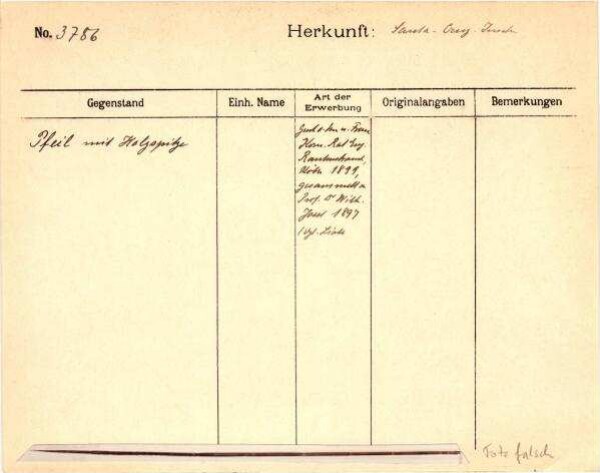 No. 3786
Herkunft: Santa-Cruz-Inseln
Gegenstand Einh. Name Art der Erwerbung Originalangaben Bemerkungen
Pfeil mit Holzspitze
Gesch. v. u. Frau
Kom. Rat Eug.
Rautenstrauch,
Köln 1899,
gesammelt v.
Prof. Dr Wilh.
Joest 1897
(vgl. Liste
Foto falsch